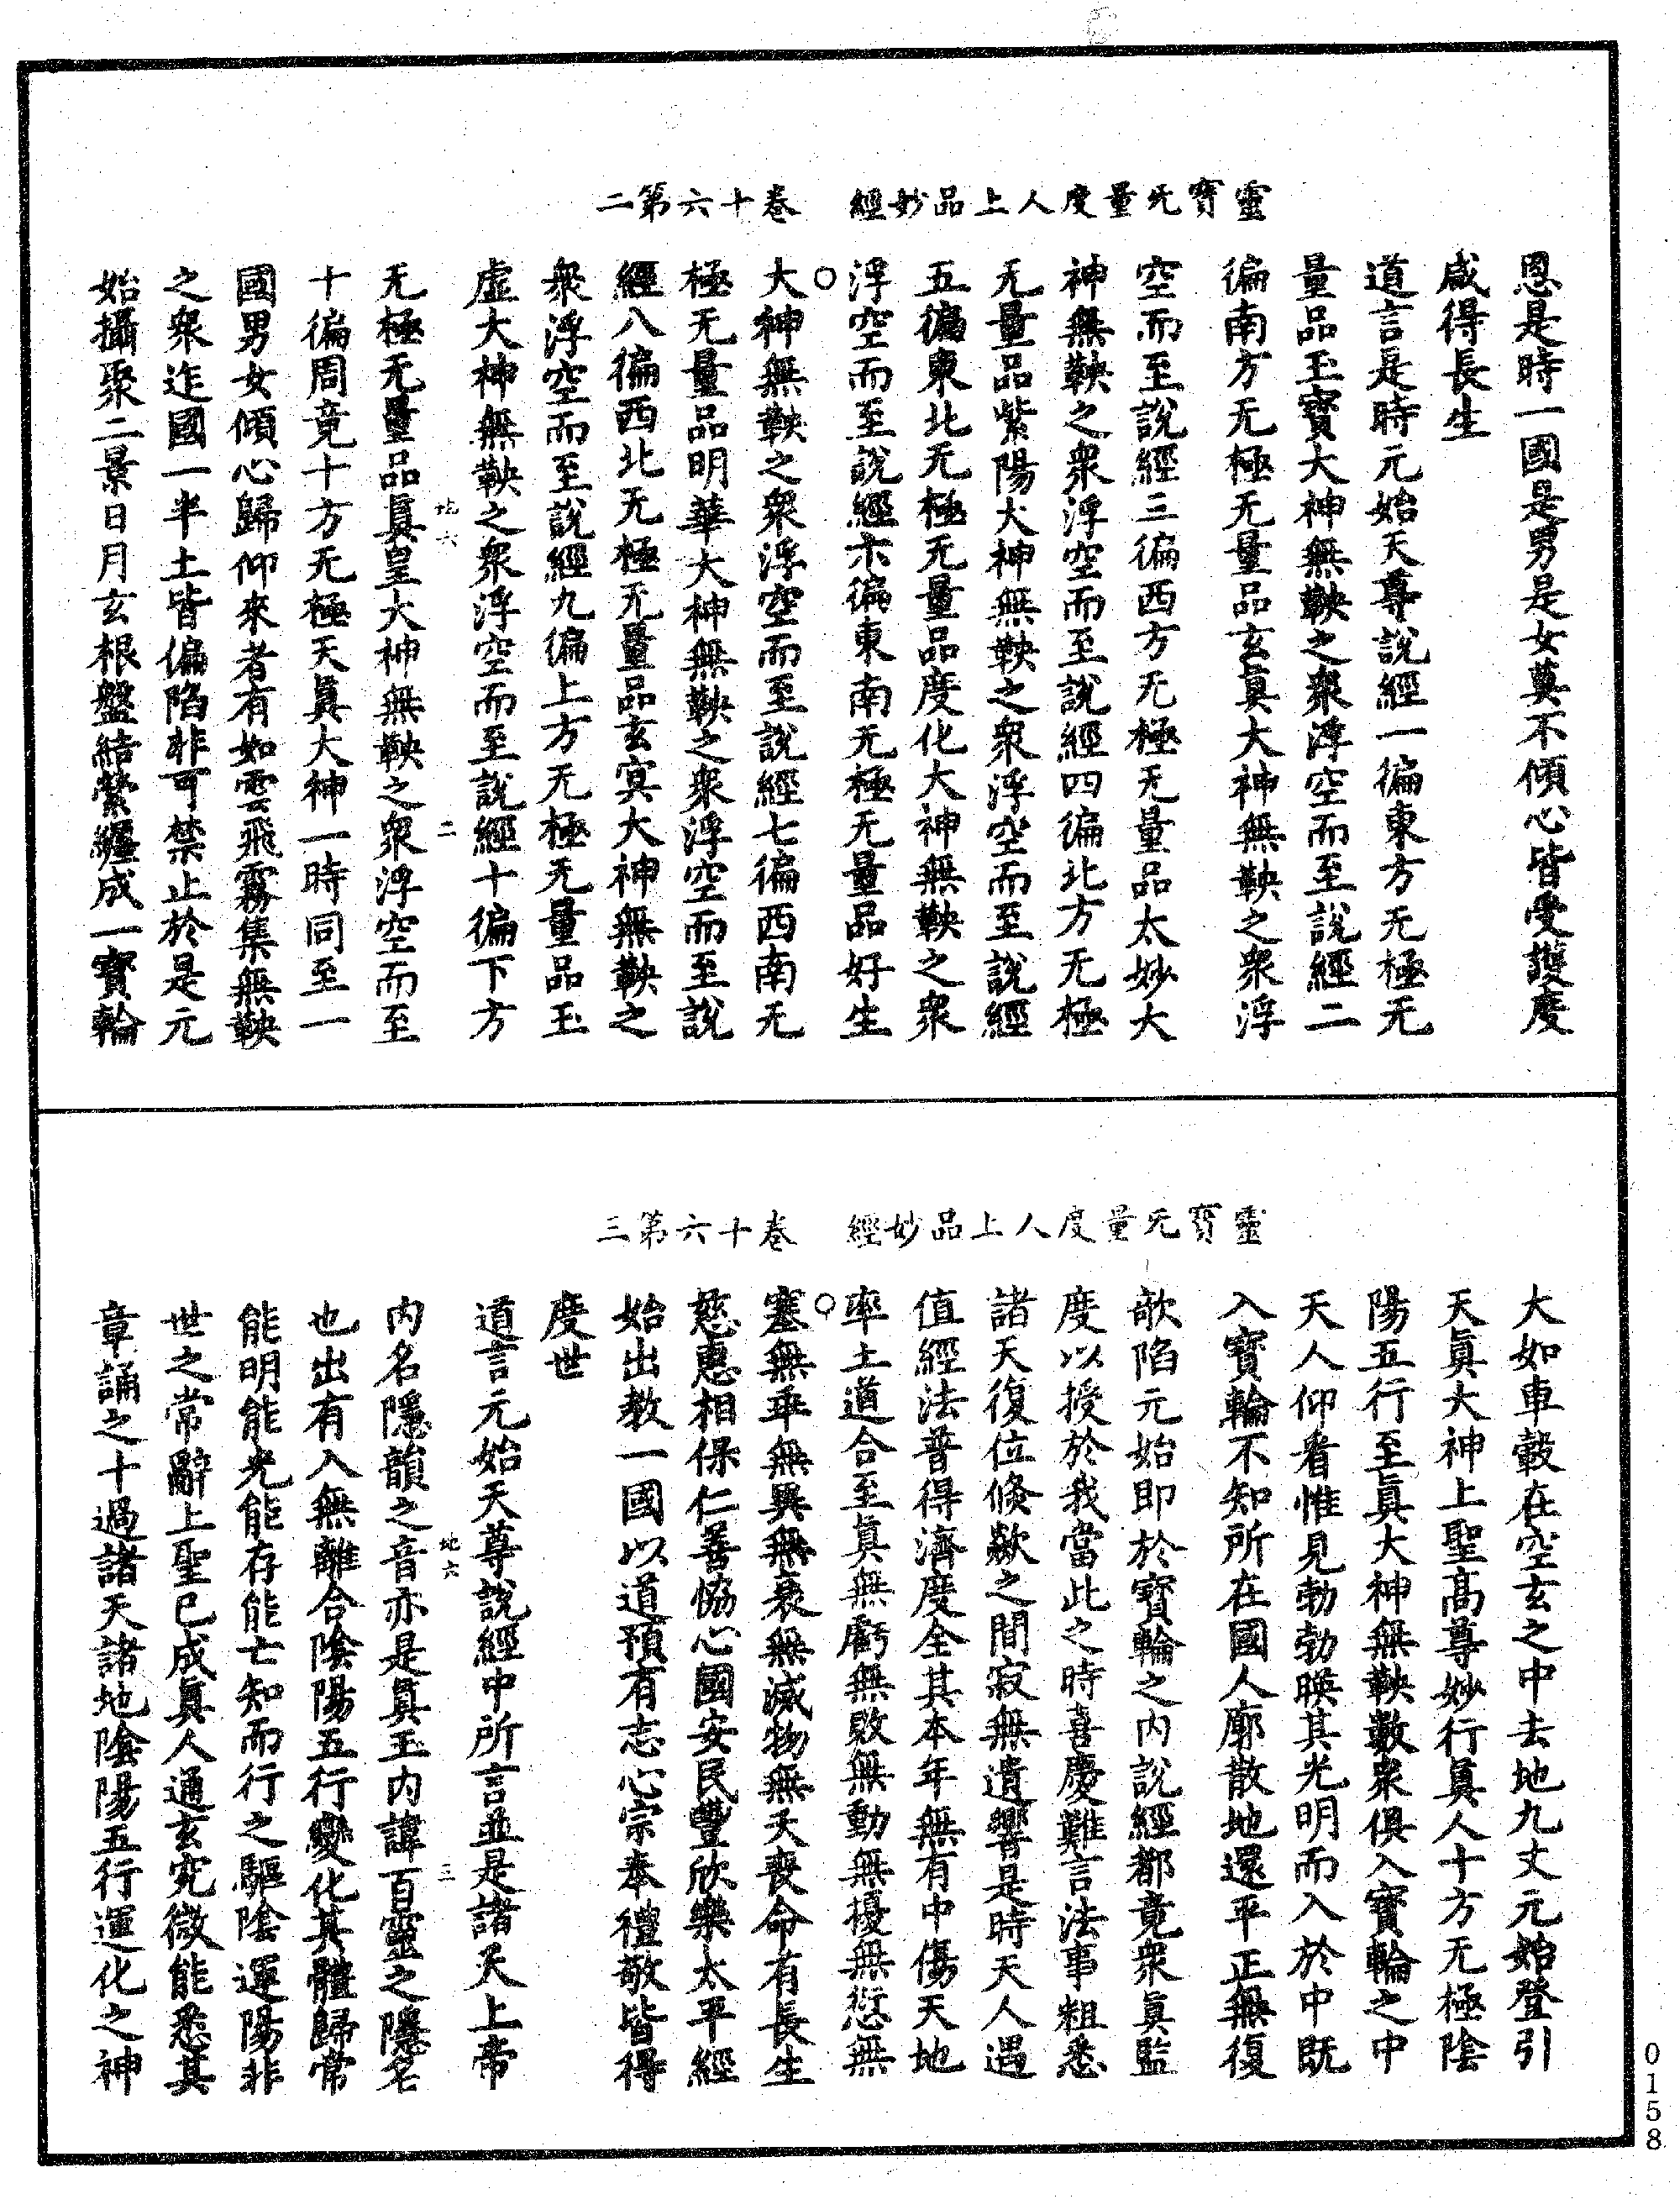 靈寶无量度人上品妙經　卷十六第二
恩是時一國是男是女莫不傾心皆受護度
咸得長生
道言是時元始天尊說經一徧東方无極无
量品玉寶大神無鞅之衆浮空而至說經二
徧南方无極无量品玄眞大神無鞅之衆浮
空而至說經三徧西方无極无量品太妙大
神無鞅之衆浮空而至說經四徧北方无極
无量品紫陽大神無鞅之衆浮空而至說經
五徧東北无極无量品度化大神無鞅之衆
浮空而至說經六徧東南无極无量品好生
大神無鞅之衆浮空而至說經七徧西南无
極无量品明華大神無鞅之衆浮空而至說
經八徧西北无極无量品玄冥大神無鞅之
衆浮空而至說經九徧上方无極无量品玉
虛大神無鞅之衆浮空而至說經十徧下方
地六　二
无極无量品眞皇大神無鞅之衆浮空而至
十徧周竟十方无極天眞大神一時同至一
國男女傾心歸仰來者有如雲飛霧集無鞅
之衆迮國一半土皆偏陷非可禁止於是元
始攝聚二景日月玄根盤結縈纏成一寶輪
靈寶无量度人上品妙經　卷十六第三
大如車轂在空玄之中去地九丈元始登引
天眞大神上聖高尊妙行眞人十方无極陰
陽五行至眞大神無鞅數衆俱入寶輪之中
天人仰看惟見勃勃暎其光明而入於中既
入寶輪不知所在國人廓散地還平正無復
欹陷元始即於寶輪之內說經都竟衆眞監
度以授於我當此之時喜慶難言法事粗悉
諸天復位倏歘之間寂無遺響是時天人遇
值經法普得濟度全其本年無有中傷天地
率土道合至眞無虧無敗無動無擾無愆無
塞無乖無異無衰無滅物無夭喪命有長生
慈惠相保仁善恊心國安民豐欣樂太平經
始出教一國以道預有志心宗奉禮敬皆得
度世
道言元始天尊說經中所言並是諸天上帝
地六　三
内名隱韻之音亦是眞王内諱百靈之隱名
也出有入無離合陰陽五行變化其體歸常
能明能光能存能亡知而行之驅陰運陽非
世之常辭上聖已成眞人通玄究微能悉其
章誦之十過諸天諸地陰陽五行運化之神
0158